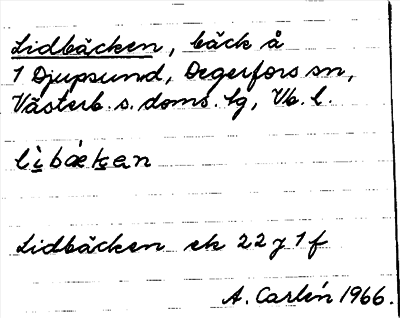 Lidbäcken, bäck å
1 Djupsund, Degerfors sn,
Västerb. s. doms. tg, Vb. l.
lìbækan
Lidbäcken ek 22 J 1 f
A. Carlén 1966.